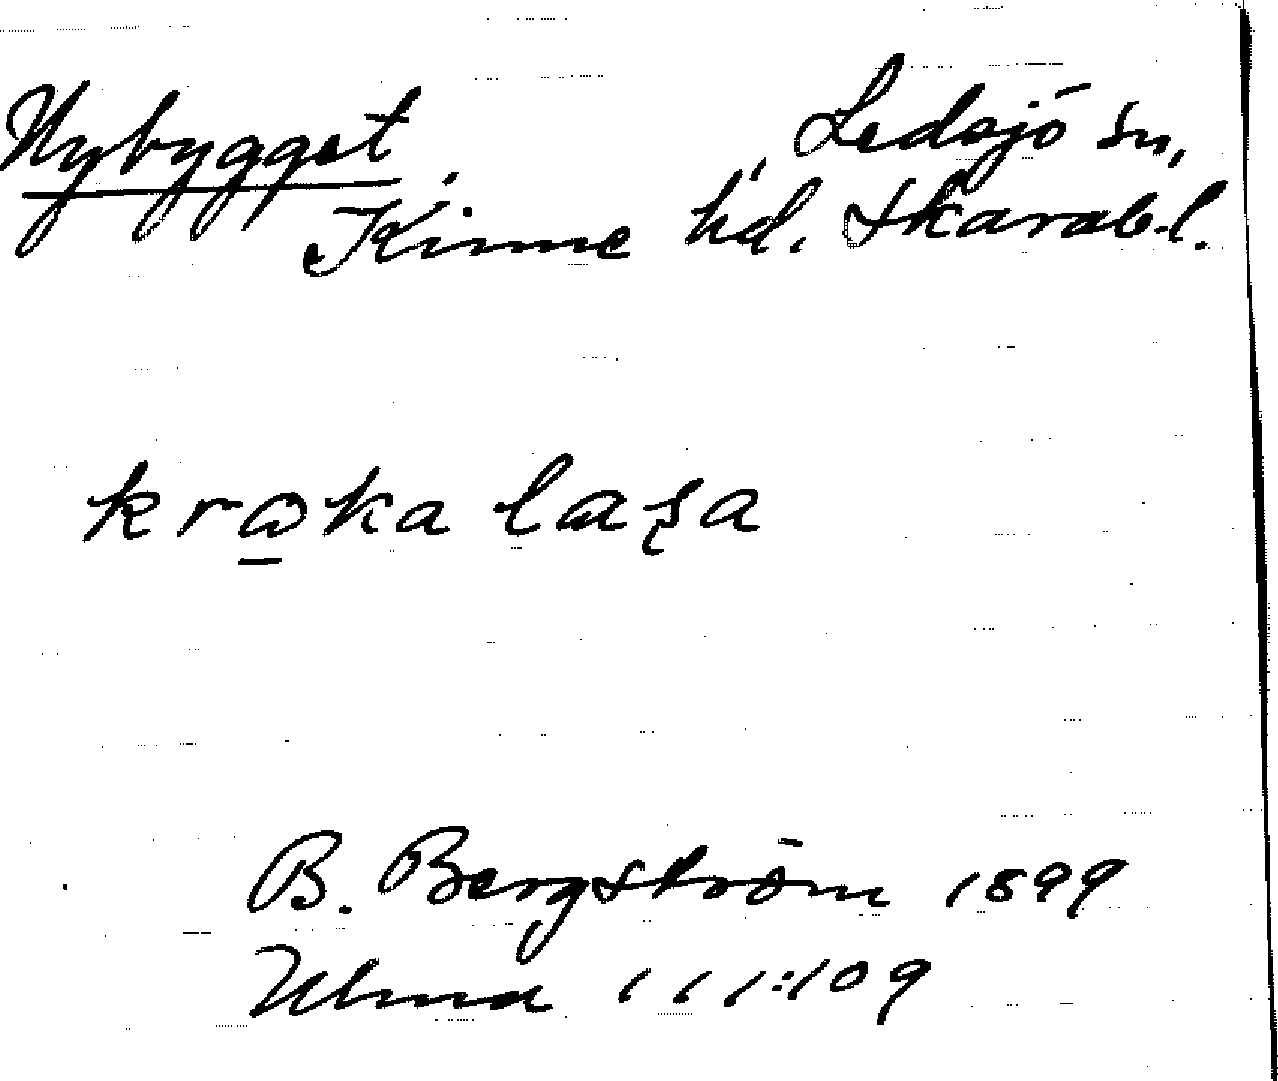 Nybygget Ledsjö sn,
Kinne hd. Skarab.l.
kraka laʂa
B. Bergström 1899
Ulma 111:109